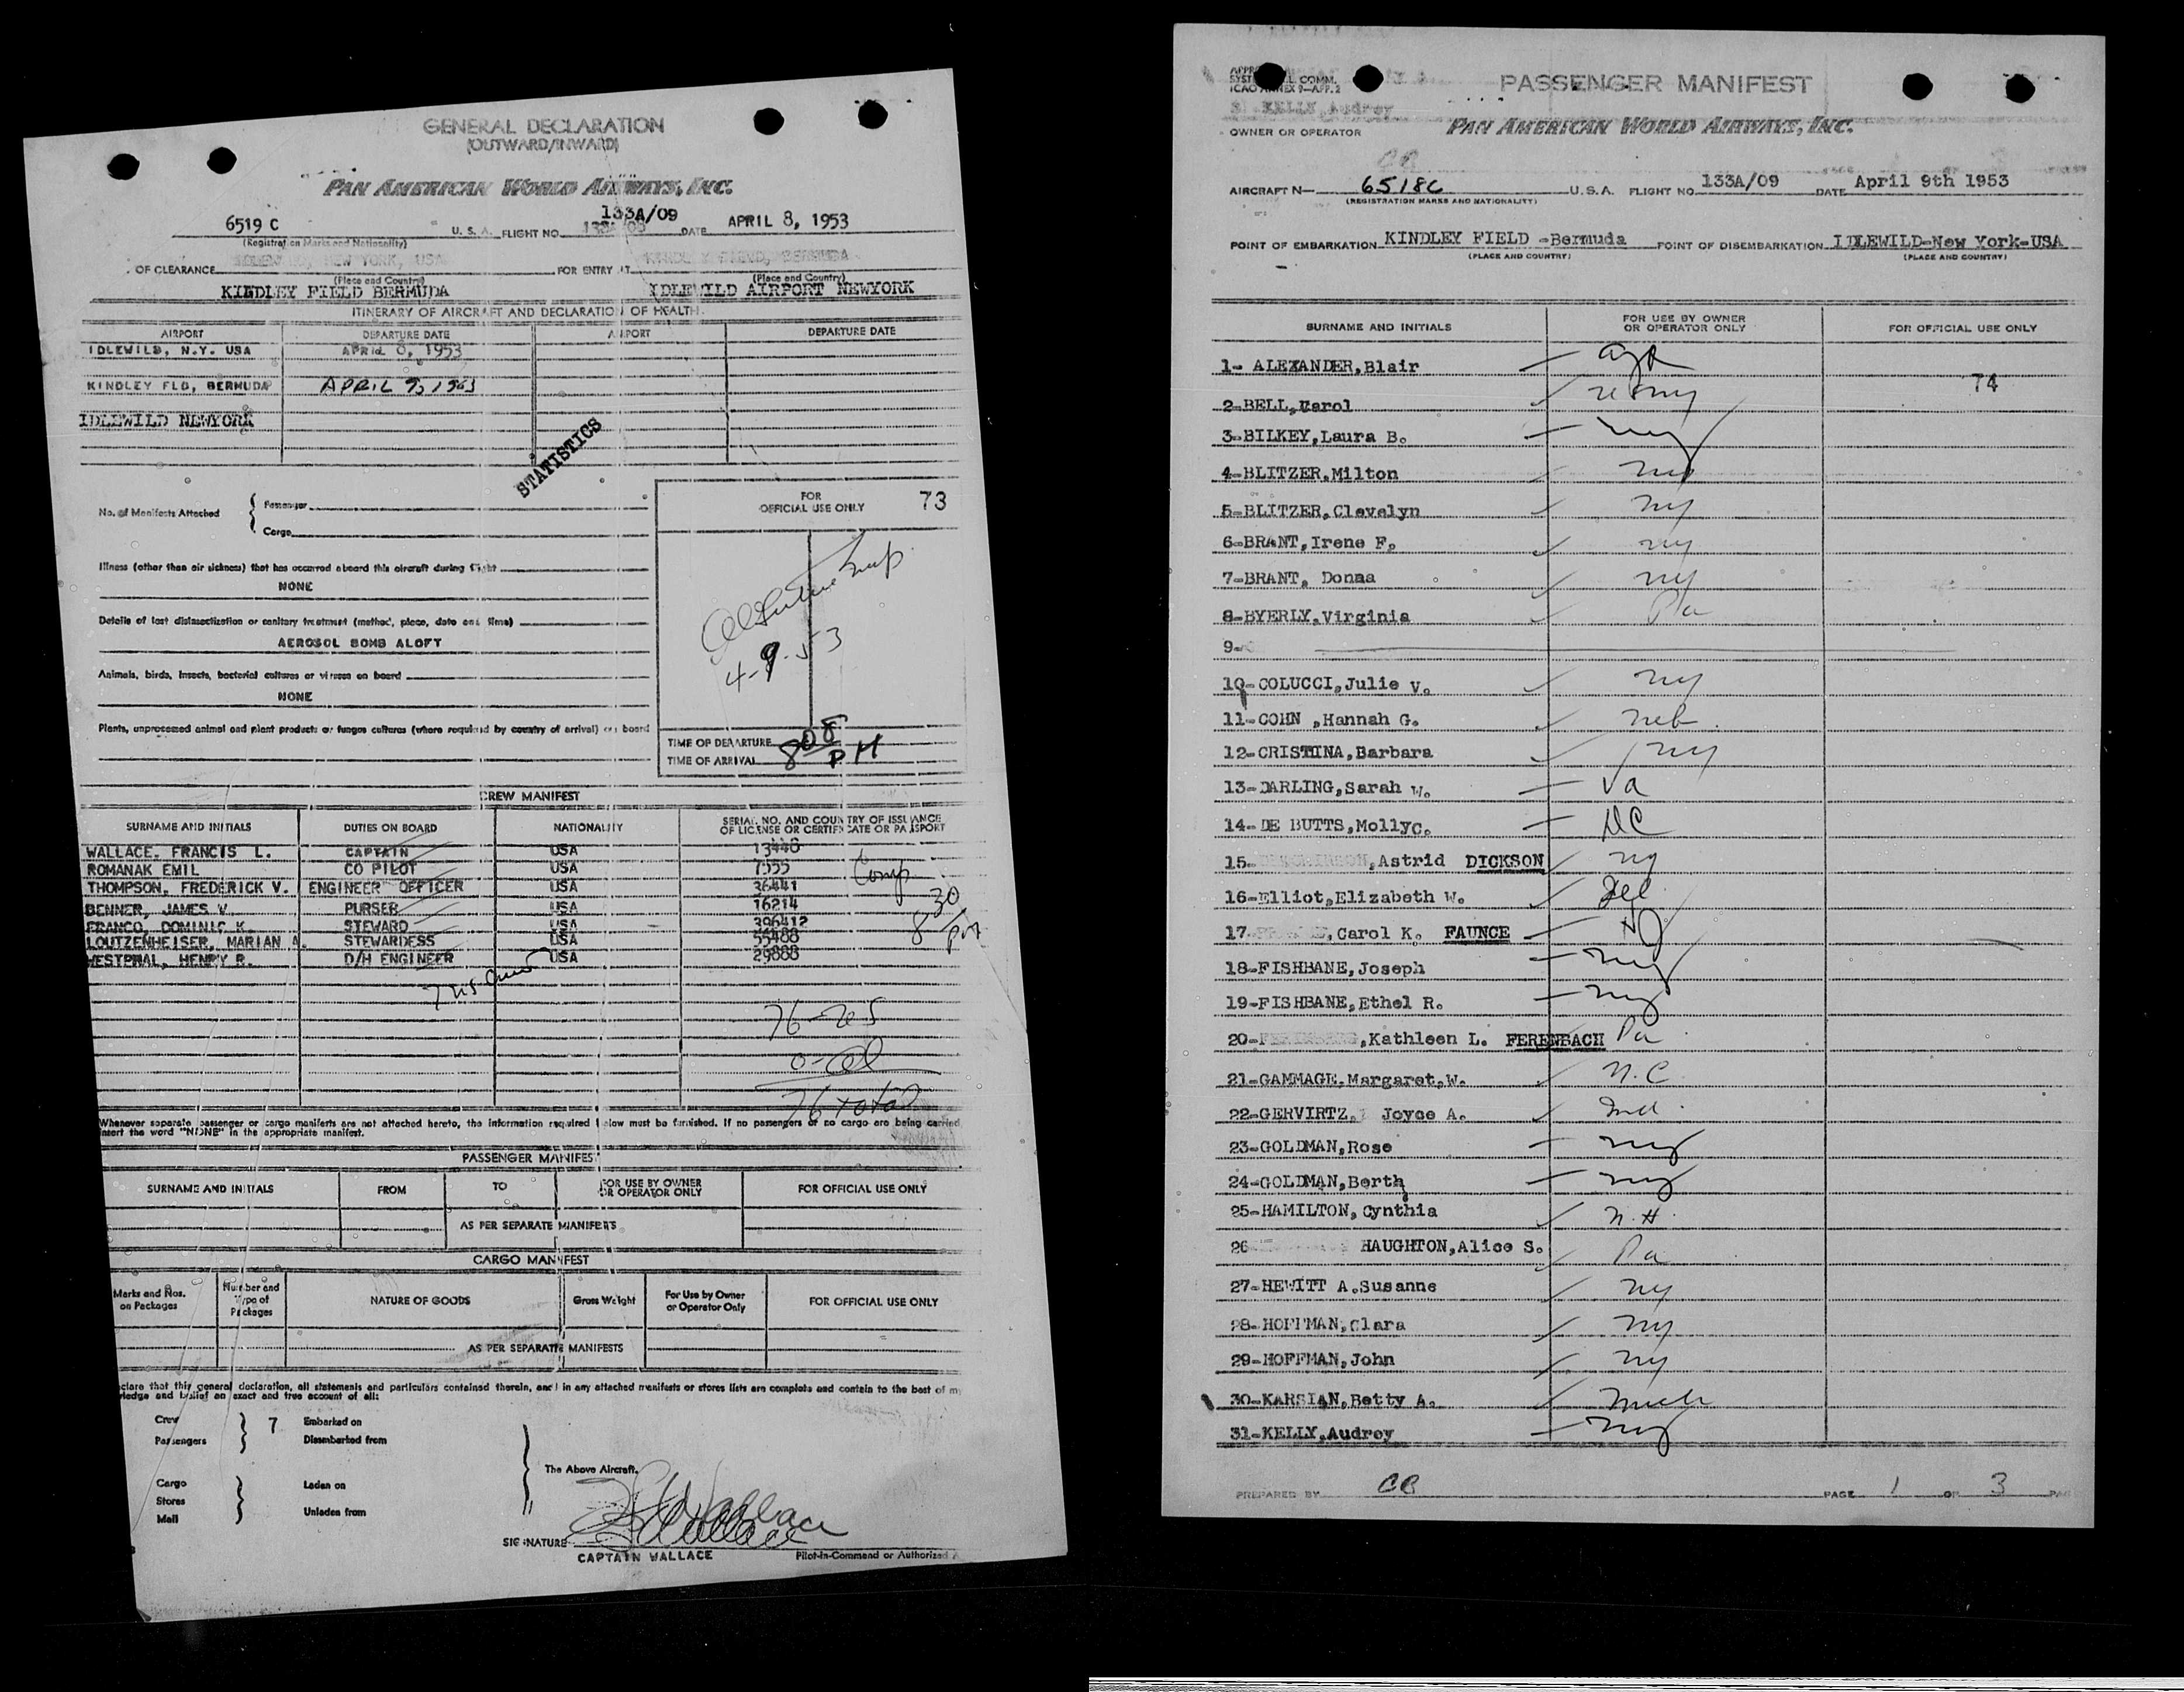 GENERAL DECLARATION
(OUTWARD/INWARD)
PAN AMERICAN WORLD AIRWAYS, INC.
6519 C U. S. A. FLIGHT NO. 133A/09 DATE APRIL 8, 1953
(Registration Marks and Nationality)
OF CLEARANCE NEW YORK, USA FOR ENTRY AT KINDLEY FIELD, BERMUDA
(Place and Country) (Place and Country)
KINDLEY FIELD BERMUDA IDLEWILD AIRPORT NEWYORK
ITINERARY OF AIRCRAFT AND DECLARATION OF HEALTH
AIRPORT DEPARTURE DATE AIRPORT DEPARTURE DATE
IDLEWILD, N.Y. USA APRIL 8, 1953
KINDLEY FLD, BERMUDA APRIL 9, 1953
IDLEWILD NEWYORK
STATISTICS
No. of Manifests Attached { Passenger
Cargo
FOR OFFICIAL USE ONLY 73
Illness (other than air sickness) that has occurred aboard this aircraft during flight
NONE
Details of last disinsectization or sanitary treatment (method, place, date and time)
AEROSOL BOMB ALOFT
Animals, birds, insects, bacterial cultures or viruses on board
NONE
4-9-53
Plants, unprocessed animal and plant products or fungus cultures (where required by country of arrival) on board
TIME OF DEPARTURE
TIME OF ARRIVAL 8 08 PM
CREW MANIFEST
SURNAME AND INITIALS DUTIES ON BOARD NATIONALITY SERIAL NO. AND COUNTRY OF ISSUANCE OF LICENSE OR CERTIFICATE OR PASSPORT
WALLACE. FRANCIS L. CAPTAIN USA 13448
ROMANAK EMIL CO PILOT USA 7555
THOMPSON, FREDERICK V. ENGINEER OFFICER USA 36441
BENNER, JAMES V. PURSER USA 16214
FRANCO, DOMINIC K. STEWARD USA 396412
LOUTZENHEISER, MARIAN A. STEWARDESS USA 55488
WESTPHAL, HENRY R. D/H ENGINEER USA 29888
Comp
8 30 PM
7 us crew
76 - res
0 - al
76 total
Whenever separate passenger or cargo manifests are not attached hereto, the information required below must be furnished. If no passengers or no cargo are being carried
insert the word "NONE" in the appropriate manifest.
PASSENGER MANIFEST
SURNAME AND INITIALS FROM TO FOR USE BY OWNER OR OPERATOR ONLY FOR OFFICIAL USE ONLY
AS PER SEPARATE MANIFESTS
CARGO MANIFEST
Marks and Nos. on Packages Number and Type of Packages NATURE OF GOODS Gross Weight For Use by Owner or Operator Only FOR OFFICIAL USE ONLY
AS PER SEPARATE MANIFESTS
clare that this general declaration, all statements and particulars contained therein, and in any attached manifests or stores lists are complete and contain to the best of m
ledge and belief an exact and true account of all:
Crew } 7 Embarked on
Passengers Disembarked from
The Above Aircraft.
Cargo Laden on
Stores
Mail Unladen from
SIGNATURE
CAPTAIN WALLACE Pilot-in-Command or Authorized A
PASSENGER MANIFEST
ICAO ANNEX 9-APP.2
KELLY, Audrey
OWNER OR OPERATOR PAN AMERICAN WORLD AIRWAYS, INC.
AIRCRAFT N— 6518C U.S.A. FLIGHT NO. 133A/09 DATE April 9th 1953
(REGISTRATION MARKS AND NATIONALITY)
POINT OF EMBARKATION KINDLEY FIELD -Bermuda POINT OF DISEMBARKATION IDLEWILD-New York-USA
(PLACE AND COUNTRY) (PLACE AND COUNTRY)
SURNAME AND INITIALS FOR USE BY OWNER OR OPERATOR ONLY FOR OFFICIAL USE ONLY
1- ALEXANDER,Blair
74
2-BELL,Carol ny
3-BILKEY,Laura B. ny
4-BLITZER,Milton ny
5-BLITZER,Clevelyn ny
6-BRANT,Irene F. ny
7-BRANT, Donna ny
8-BYERLY,Virginia Pa
9-
10-COLUCCI,Julie V. ny
11-COHN ,Hannah G. neb.
12-CRISTINA,Barbara ny
13-DARLING,Sarah W. Va
14-DE BUTTS,MollyC. DC
15- ,Astrid DICKSON ny
16-Elliot,Elizabeth W. Del
17- ,Carol K. FAUNCE NJ
18-FISHBANE,Joseph ny
19-FISHBANE,Ethel R. ny
20- ,Kathleen L. FERENBACH Pa
21-GAMMAGE,Margaret,W. N.C.
22-GERVIRTZ, Joyce A. Ind.
23-GOLDMAN,Rose ny
24-GOLDMAN,Berth ny
25-HAMILTON,Cynthia N.H.
26 HAUGHTON,Alice S. Pa
27-HEWITT A.Susanne ny
28-HOFFMAN,Clara ny
29-HOFFMAN,John ny
30-KARSIAN,Betty A. Mich
31-KELLY,Audrey ny
PREPARED BY CB PAGE 1 OF 3